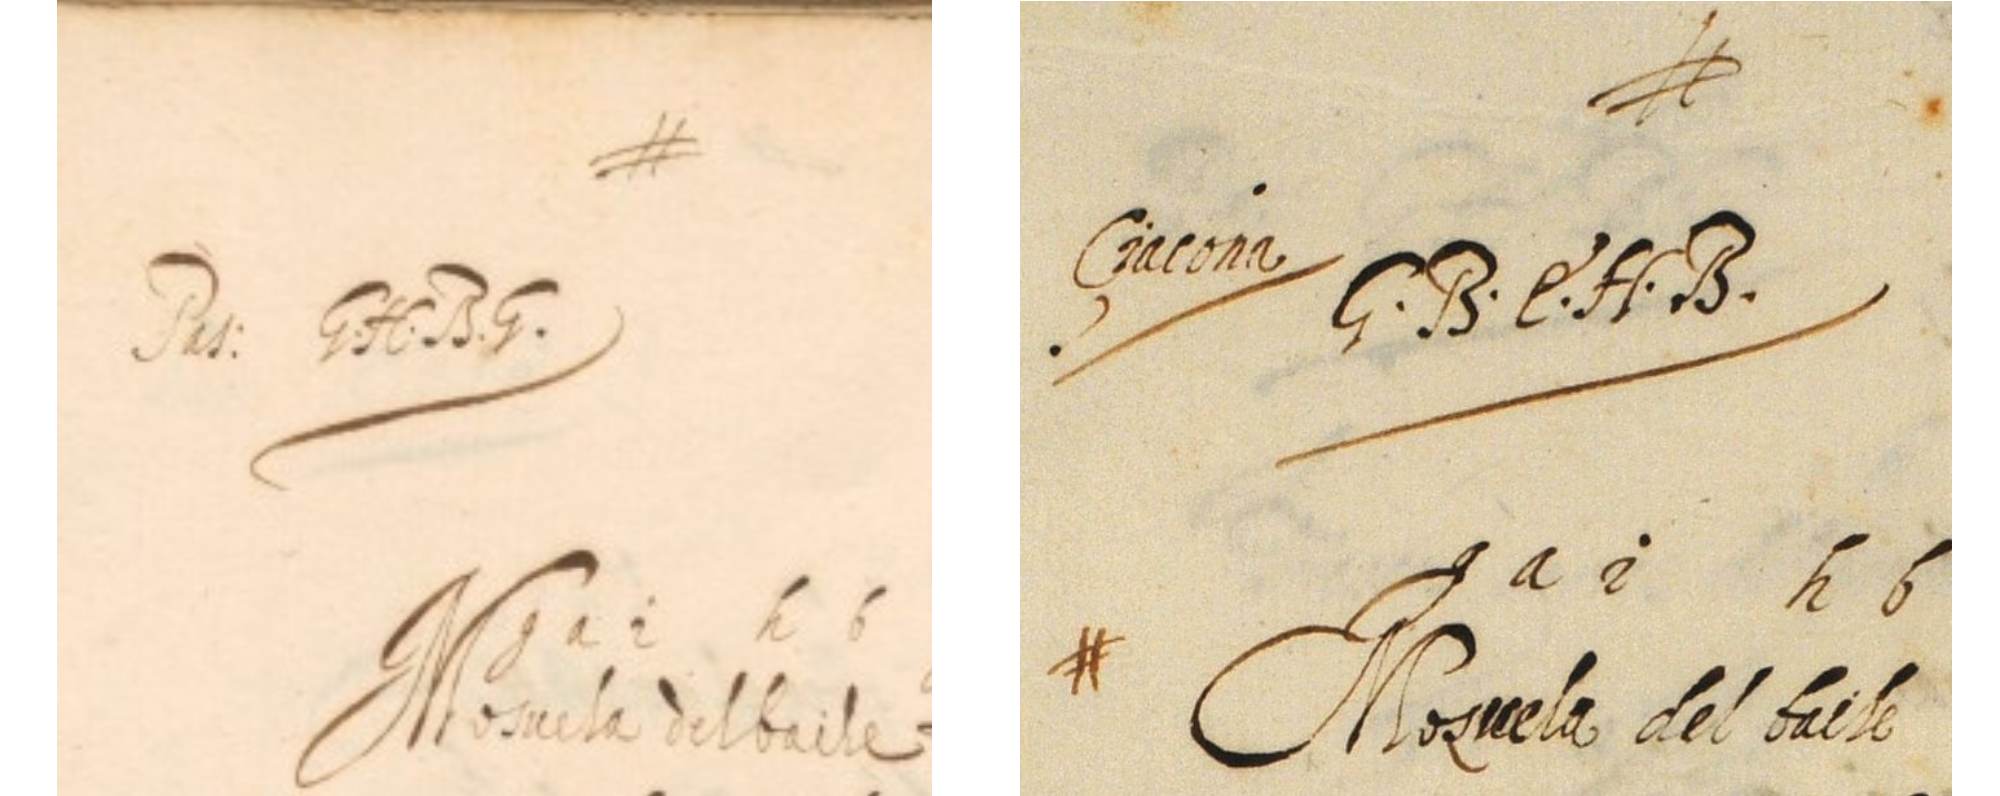 #
Pas: G.H.B.G.
g a i h b
Mosuela del baile
#
Ciacona G. B. e. H. B.
g a i h b
#
Mosuela del baile